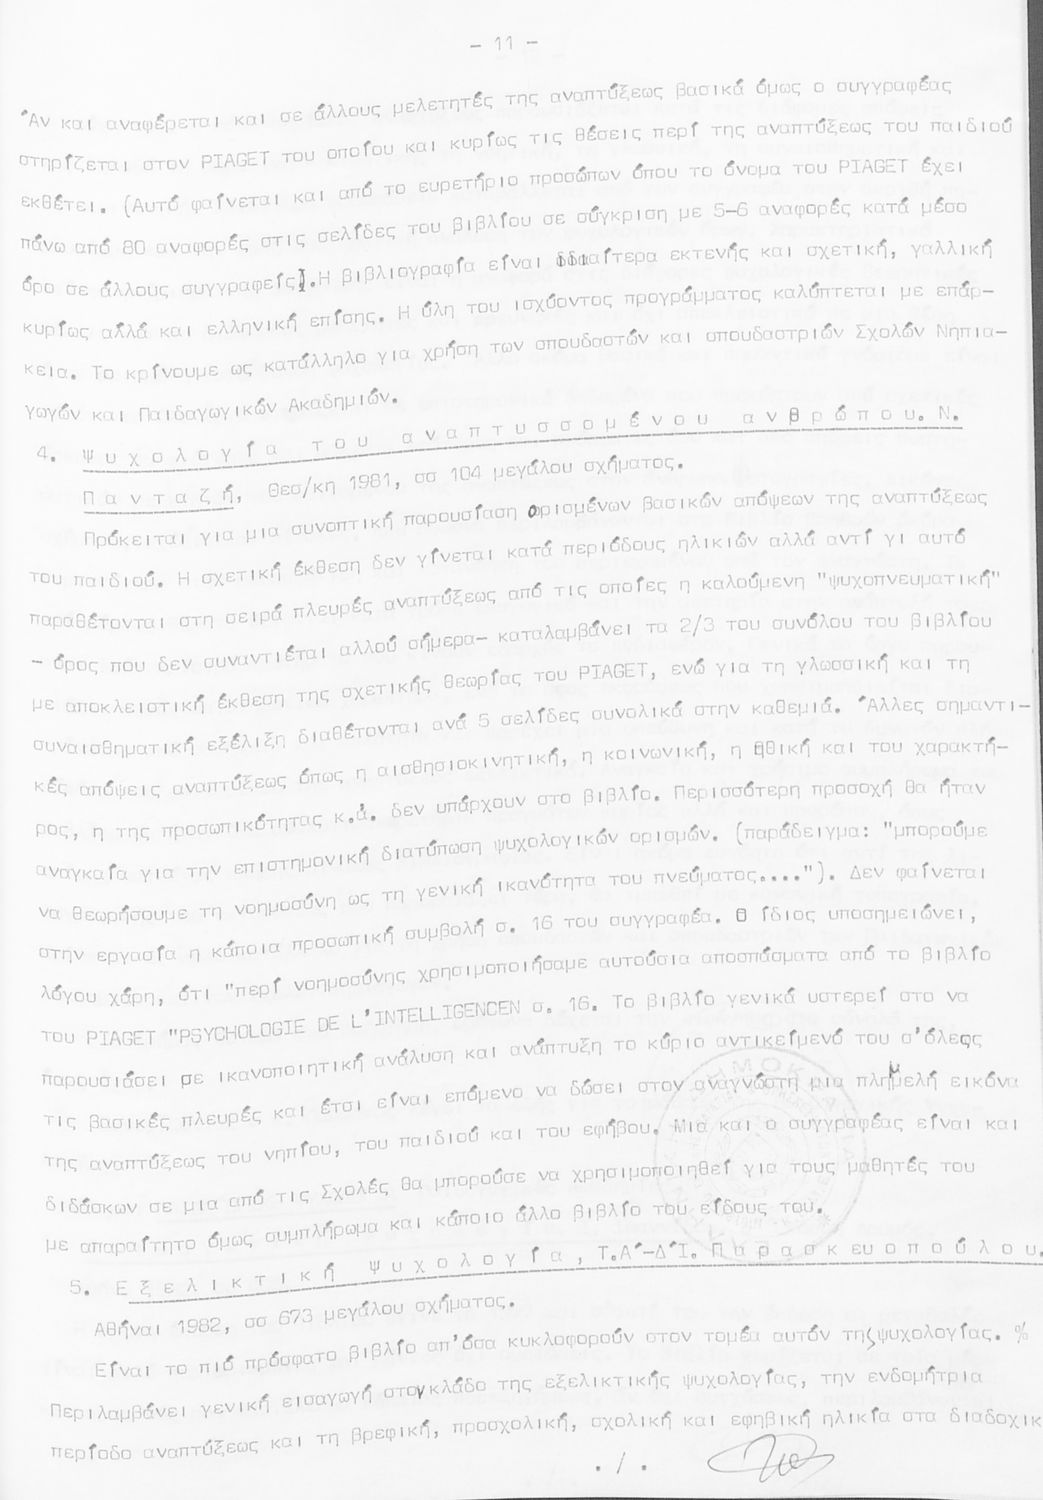 - 11 -
Ἄν και αναφέρεται και σε άλλους μελετητές της αναπτύξεως βασικά όμως ο συγγραφέας
στηρίζεται στον PIAGET του οποίου και κυρίως τις θέσεις περί της αναπτύξεως του παιδιού
εκθέτει. (Αυτό φαίνεται και από το ευρετήριο προσώπων όπου το όνομα του PIAGET έχει
πάνω από 80 αναφορές στις σελίδες του βιβλίου σε σύγκριση με 5-6 αναφορές κατά μέσο
όρο σε άλλους συγγραφείς). Η βιβλιογραφία είναι ιδιαίτερα εκτενής και σχετική, γαλλική
κυρίως αλλά και ελληνική επίσης. Η ύλη του ισχύοντος προγράμματος καλύπτεται με επάρ-
κεια. Το κρίνουμε ως κατάλληλο για χρήση των σπουδαστών και σπουδαστριών Σχολών Νηπια-
γωγών και Παιδαγωγικών Ακαδημιών.
4. Ψυχολογία του αναπτυσσομένου ανθρώπου. Ν.
Πανταζή, Θεσ/κη 1981, σσ 104 μεγάλου σχήματος.
Πρόκειται για μια συνοπτική παρουσίαση ορισμένων βασικών απόψεων της αναπτύξεως
του παιδιού. Η σχετική έκθεση δεν γίνεται κατά περιόδους ηλικιών αλλά αντί γι αυτό
παραθέτονται στη σειρά πλευρές αναπτύξεως από τις οποίες η καλούμενη "ψυχοπνευματική"
- όρος που δεν συναντιέται αλλού σήμερα- καταλαμβάνει τα 2/3 του συνόλου του βιβλίου
με αποκλειστική έκθεση της σχετικής θεωρίας του PIAGET, ενώ για τη γλωσσική και τη
συναισθηματική εξέλιξη διαθέτονται ανά 5 σελίδες συνολικά στην καθεμιά. Ἄλλες σημαντι-
κές απόψεις αναπτύξεως όπως η αισθησιοκινητική, η κοινωνική, η ηθική και του χαρακτή-
ρος, η της προσωπικότητας κ.ά. δεν υπάρχουν στο βιβλίο. Περισσότερη προσοχή θα ήταν
αναγκαία για την επιστημονική διατύπωση ψυχολογικών ορισμών. (παράδειγμα: "μπορούμε
να θεωρήσουμε τη νοημοσύνη ως τη γενική ικανότητα του πνεύματος...."). Δεν φαίνεται
στην εργασία η κάποια προσωπική συμβολή σ. 16 του συγγραφέα. Ο ίδιος υποσημειώνει,
λόγου χάρη, ότι "περί νοημοσύνης χρησιμοποιήσαμε αυτούσια αποσπάσματα από το βιβλίο
του PIAGET "PSYCHOLOGIE DE L'INTELLIGENCEN σ. 16. Το βιβλίο γενικά υστερεί στο να
παρουσιάσει με ικανοποιητική ανάλυση και ανάπτυξη το κύριο αντικείμενό του σ'όλες
τις βασικές πλευρές και έτσι είναι επόμενο να δώσει στον αναγνώστη μια πλημμελή εικόνα
της αναπτύξεως του νηπίου, του παιδιού και του εφήβου. Μια και ο συγγραφέας είναι και
διδάσκων σε μια από τις Σχολές θα μπορούσε να χρησιμοποιηθεί για τους μαθητές του
με απαραίτητο όμως συμπλήρωμα και κάποιο άλλο βιβλίο του είδους του.
5. Εξελικτική Ψυχολογία, Τ.Α΄-Δ΄Ι. Παρασκευοπούλου.
Αθήναι 1982, σσ 673 μεγάλου σχήματος.
Είναι το πιό πρόσφατο βιβλίο απ'όσα κυκλοφορούν στον τομέα αυτόν της ψυχολογίας. %
Περιλαμβάνει γενική εισαγωγή στον κλάδο της εξελικτικής ψυχολογίας, την ενδομήτρια
περίοδο αναπτύξεως και τη βρεφική, προσχολική, σχολική και εφηβική ηλικία στα διαδοχικ
. / .